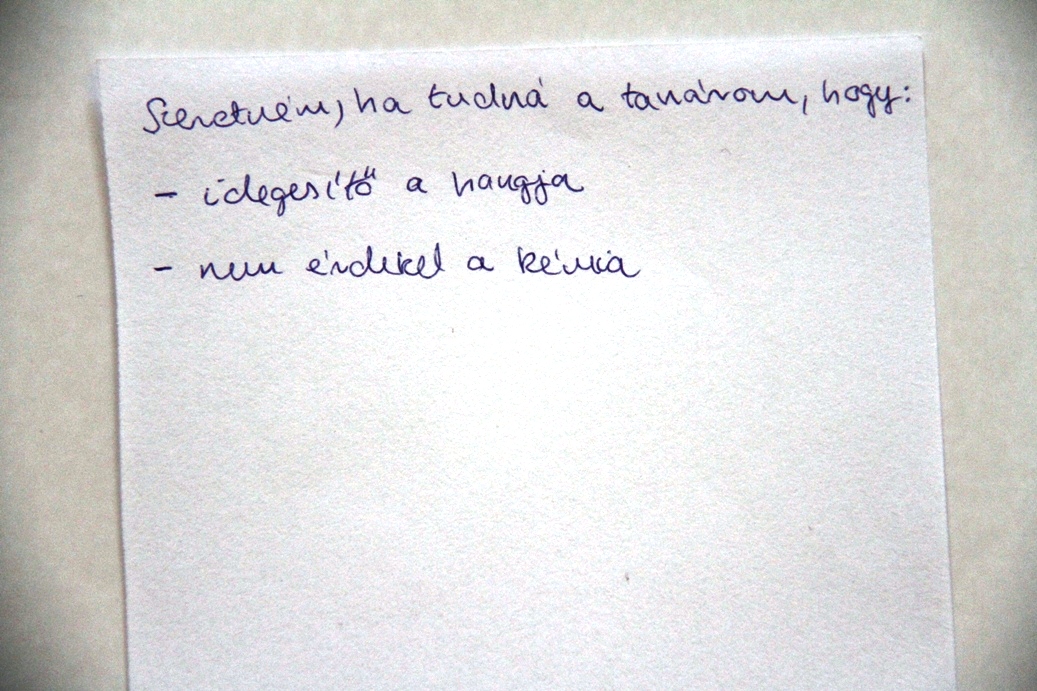 Szeretném, ha tudná a tanárom, hogy:
- idegesítő a hangja
- nem érdekel a kémia